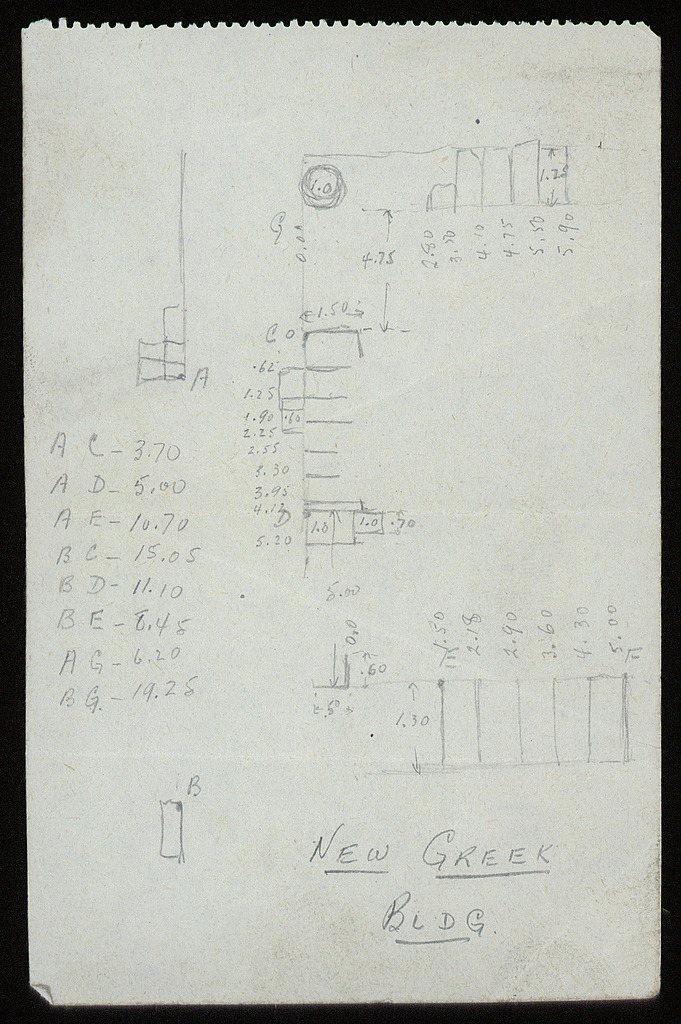 1.0
1.25
G
0.00
4.75
2.80
3.50
4.10
4.75
5.50
5.90
1.50
C 0
.62
A
1.25
1.90
.60
2.25
2.55
3.30
3.95
4.12
D
1.0
1.0
.70
5.20
5.00
A C - 3.70
A D - 5.00
A E - 10.70
B C - 15.05
B D - 11.10
B E - 8.45
A G - 6.20
B G. - 19.25
0.0
.60
1.50
2.18
2.90
3.60
4.30
5.00
1.30
B
NEW GREEK
BLDG.